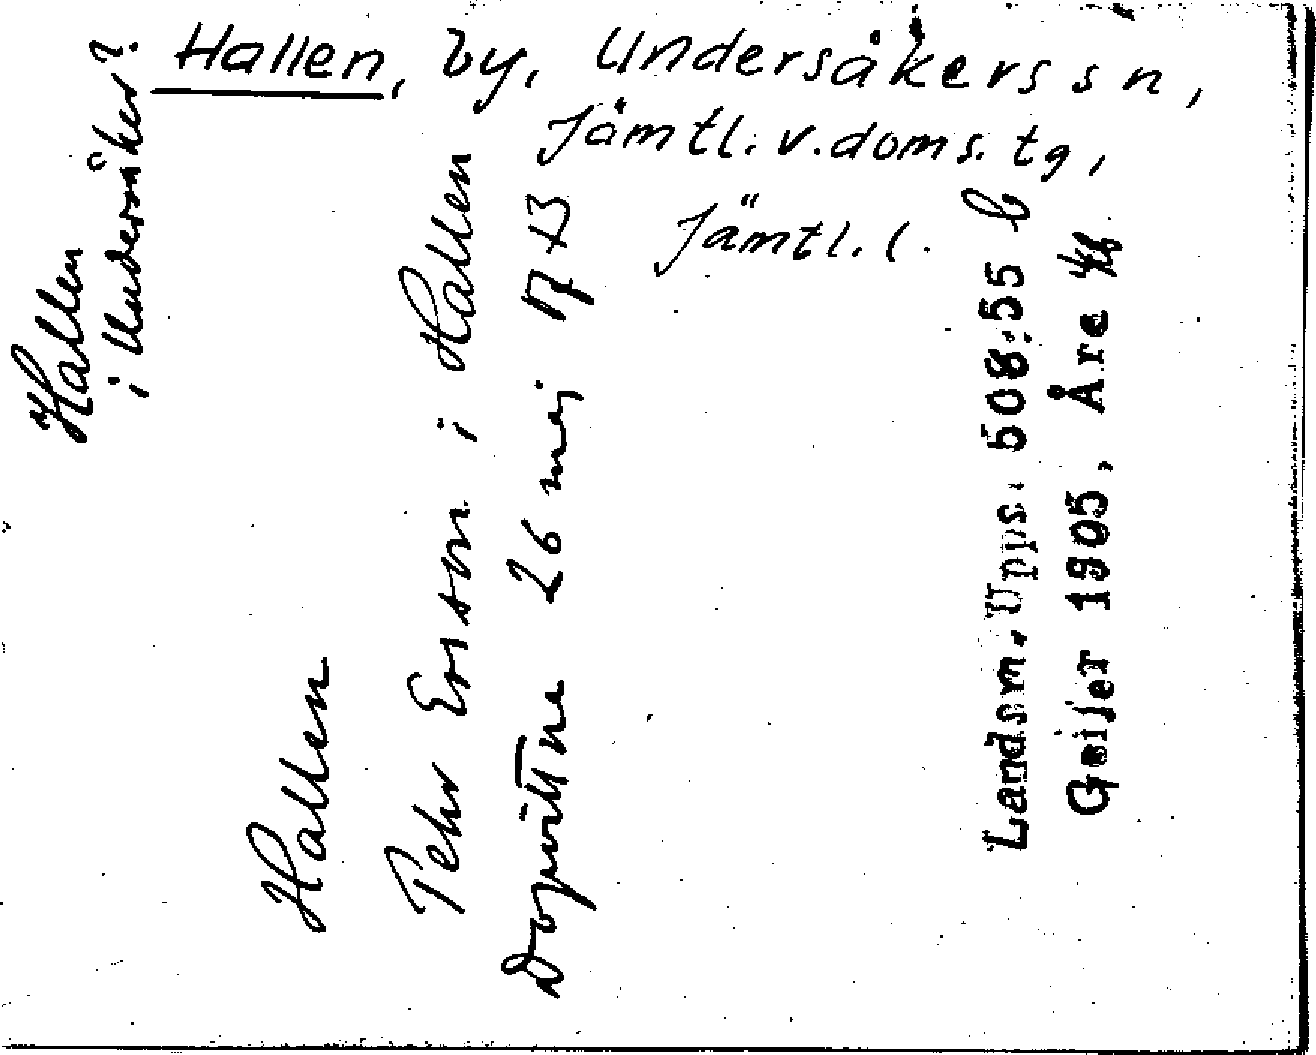 Hallen, by, Undersåkers sn,
Jämtl. v. doms. tg,
Jämtl. l.
Hallen
i Undersåker?
Hallen
Pehr Ersson i Hallen
Dopvittne 26 maj
Landsm. Upps. 508:55 b
Geijer 1905, Åre